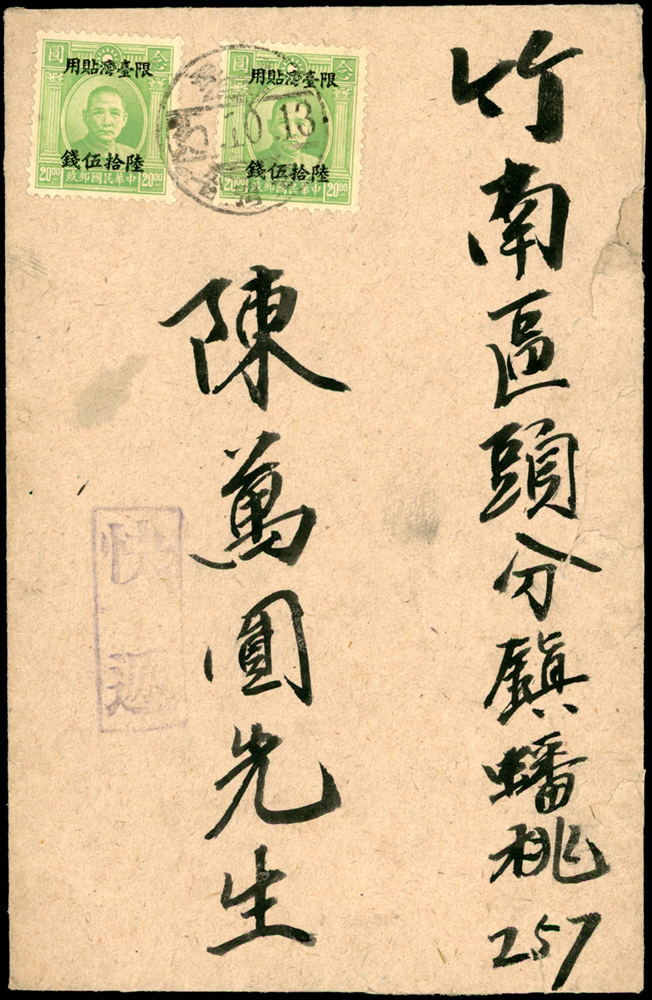 竹南區頭分鎮蟠桃257
陳萬圓先生
快遞
圓 念
限臺灣貼用
陸拾伍錢
20⁰⁰ 中華民國郵政 20⁰⁰
圓 念
限臺灣貼用
陸拾伍錢
20⁰⁰ 中華民國郵政 20⁰⁰
10.13